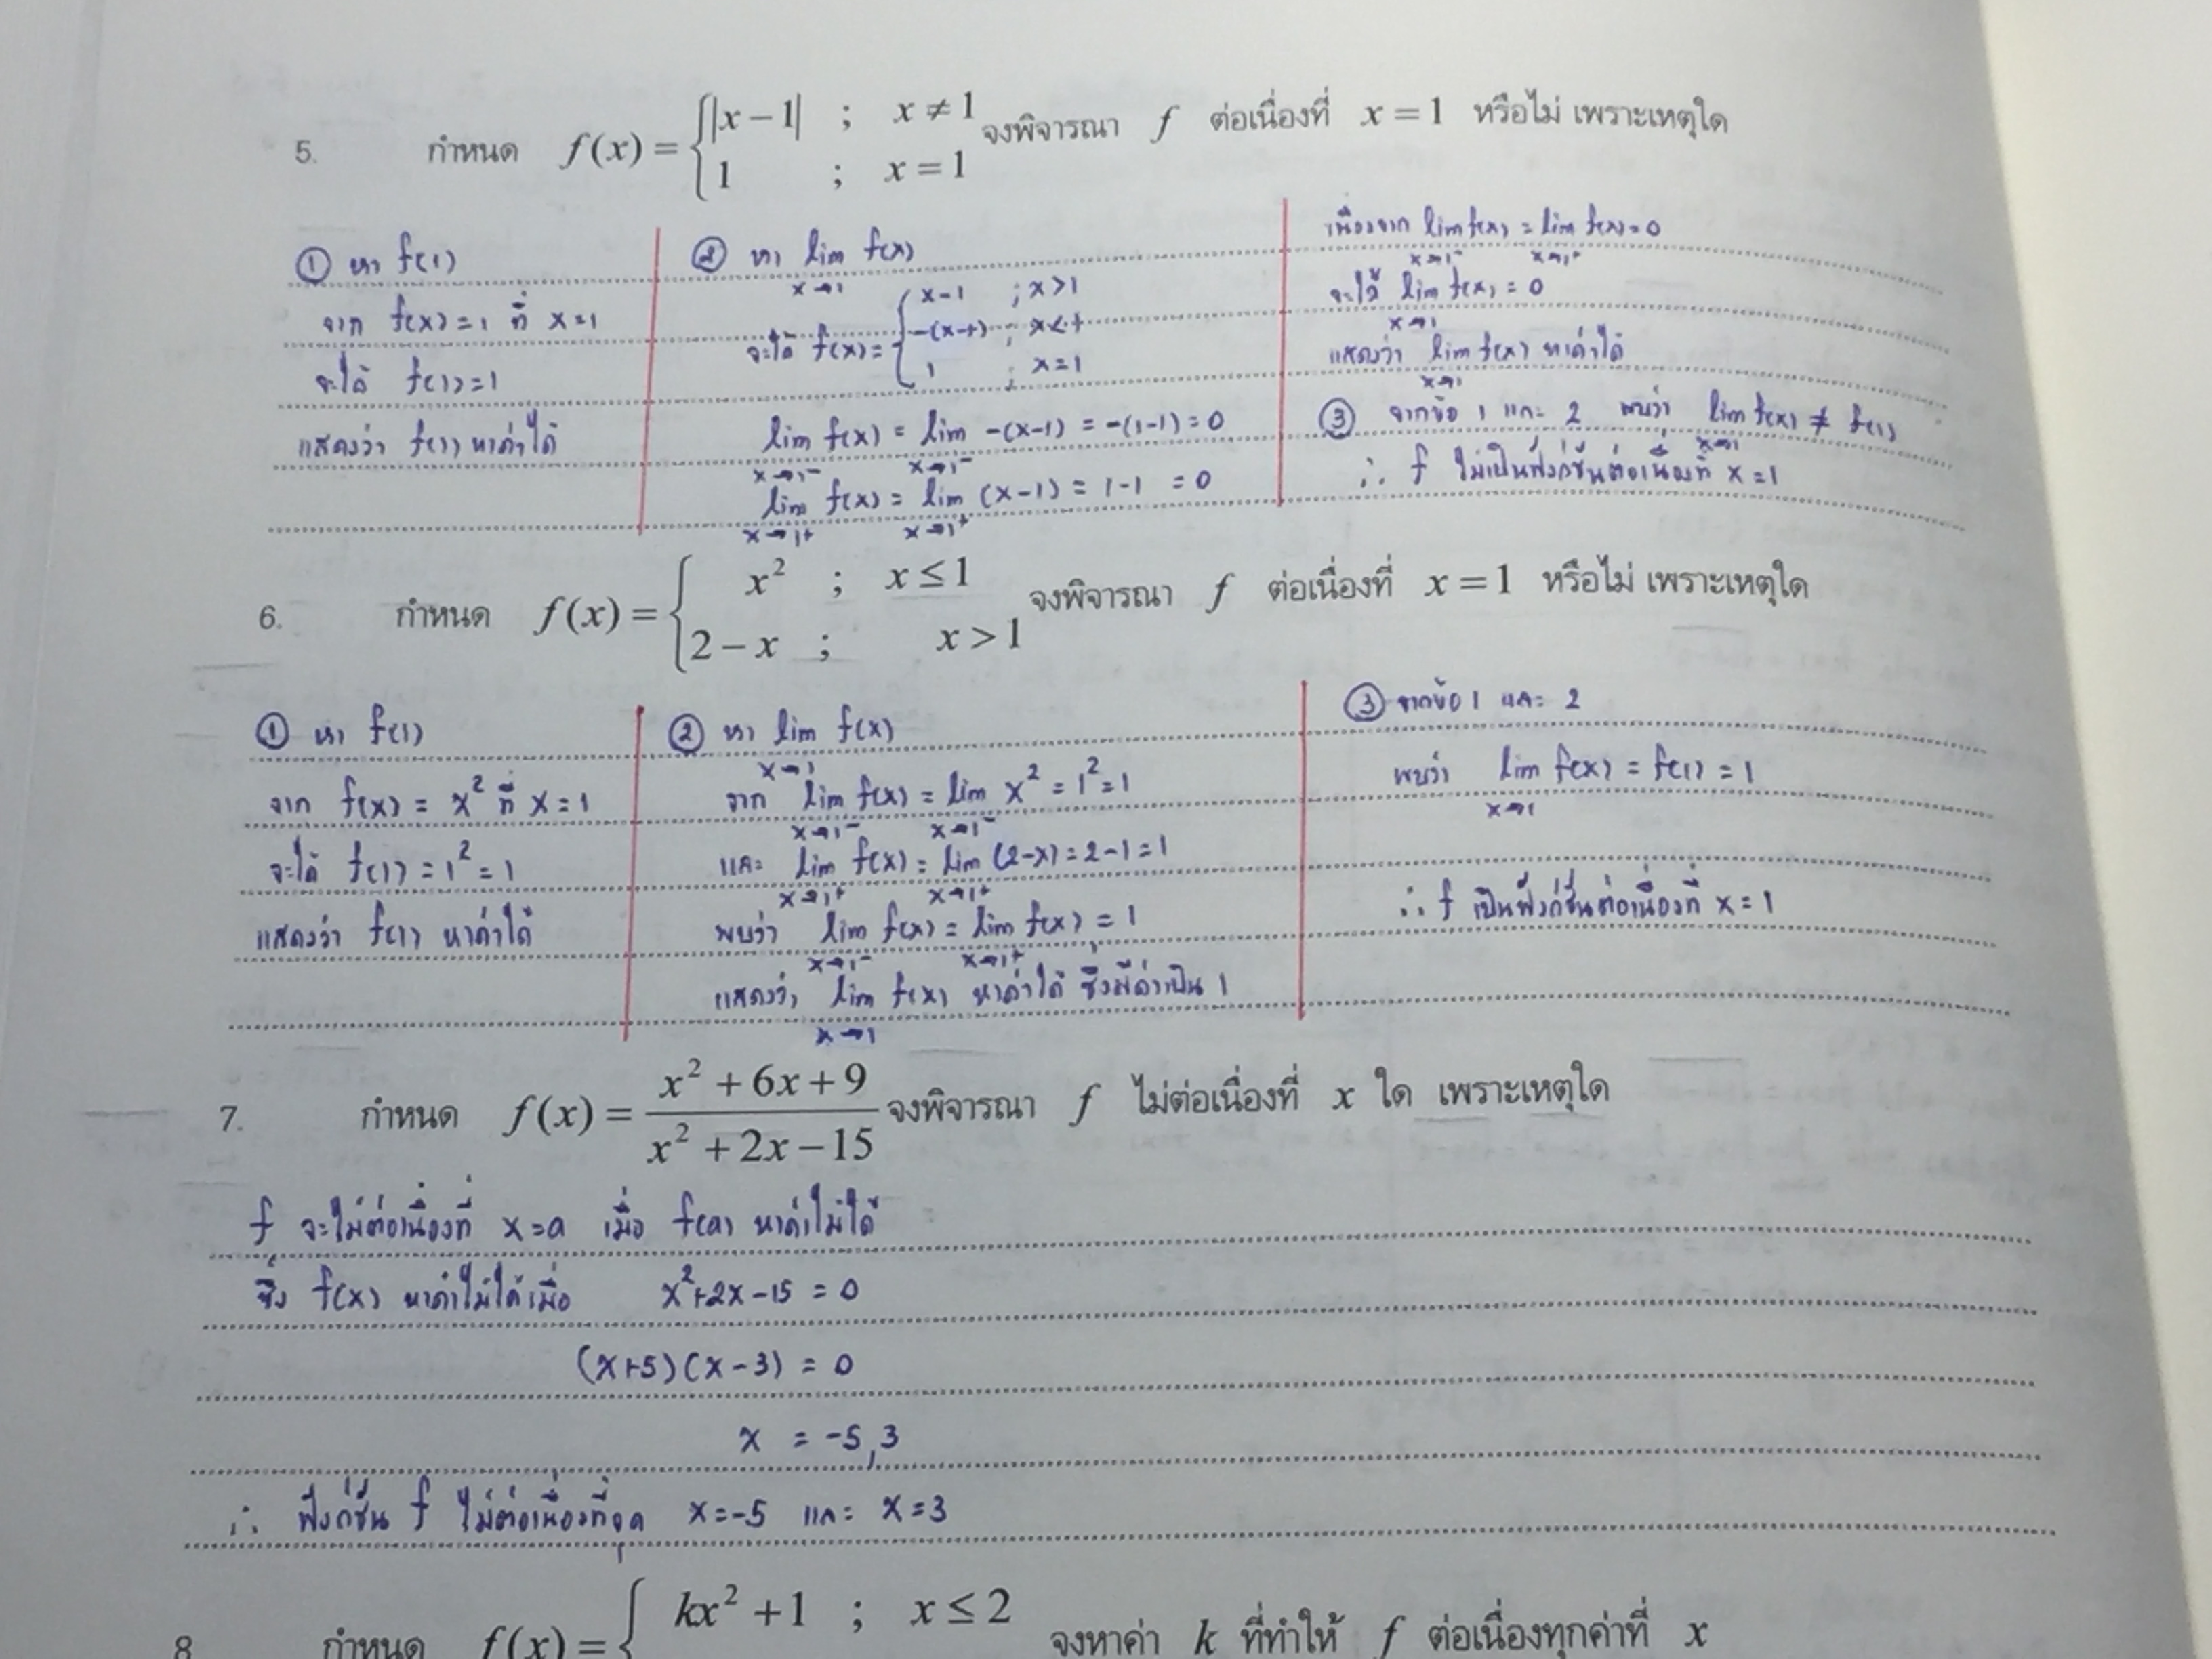 5. กำหนด f(x) = { |x − 1| ; x ≠ 1
1 ; x = 1 จงพิจารณา f ต่อเนื่องที่ x = 1 หรือไม่ เพราะเหตุใด
① หา f(1)
จาก f(x) = 1 ที่ x = 1
จะได้ f(1) = 1
แสดงว่า f(1) หาค่าได้
② หา lim f(x)
x→1
จะได้ f(x) = { x-1 ; x>1
-(x-1) ; x<1
1 ; x=1
lim f(x) = lim -(x-1) = -(1-1) = 0
x→1⁻ x→1⁻
lim f(x) = lim (x-1) = 1-1 = 0
x→1⁺ x→1⁺
เนื่องจาก lim f(x) = lim f(x) = 0
x→1⁻ x→1⁺
จะได้ lim f(x) = 0
x→1
แสดงว่า lim f(x) หาค่าได้
x→1
③ จากข้อ 1 และ 2 พบว่า lim f(x) ≠ f(1)
x→1
∴ f ไม่เป็นฟังก์ชันต่อเนื่องที่ x = 1
6. กำหนด f(x) = { x² ; x ≤ 1
2 − x ; x > 1 จงพิจารณา f ต่อเนื่องที่ x = 1 หรือไม่ เพราะเหตุใด
① หา f(1)
จาก f(x) = x² ที่ x = 1
จะได้ f(1) = 1² = 1
แสดงว่า f(1) หาค่าได้
② หา lim f(x)
x→1
จาก lim f(x) = lim x² = 1² = 1
x→1⁻ x→1⁻
และ lim f(x) = lim (2-x) = 2-1 = 1
x→1⁺ x→1⁺
พบว่า lim f(x) = lim f(x) = 1
x→1⁻ x→1⁺
แสดงว่า lim f(x) หาค่าได้ ซึ่งมีค่าเป็น 1
x→1
③ จากข้อ 1 และ 2
พบว่า lim f(x) = f(1) = 1
x→1
∴ f เป็นฟังก์ชันต่อเนื่องที่ x = 1
7. กำหนด f(x) = (x² + 6x + 9)/(x² + 2x − 15) จงพิจารณา f ไม่ต่อเนื่องที่ x ใด เพราะเหตุใด
f จะไม่ต่อเนื่องที่ x=a เมื่อ f(a) หาค่าไม่ได้
ซึ่ง f(x) หาค่าไม่ได้เมื่อ x²+2x-15 = 0
(x+5)(x-3) = 0
x = -5, 3
∴ ฟังก์ชัน f ไม่ต่อเนื่องที่จุด x=-5 และ x=3
8 กำหนด f(x) = { kx² + 1 ; x ≤ 2
จงหาค่า k ที่ทำให้ f ต่อเนื่องทุกค่าที่ x